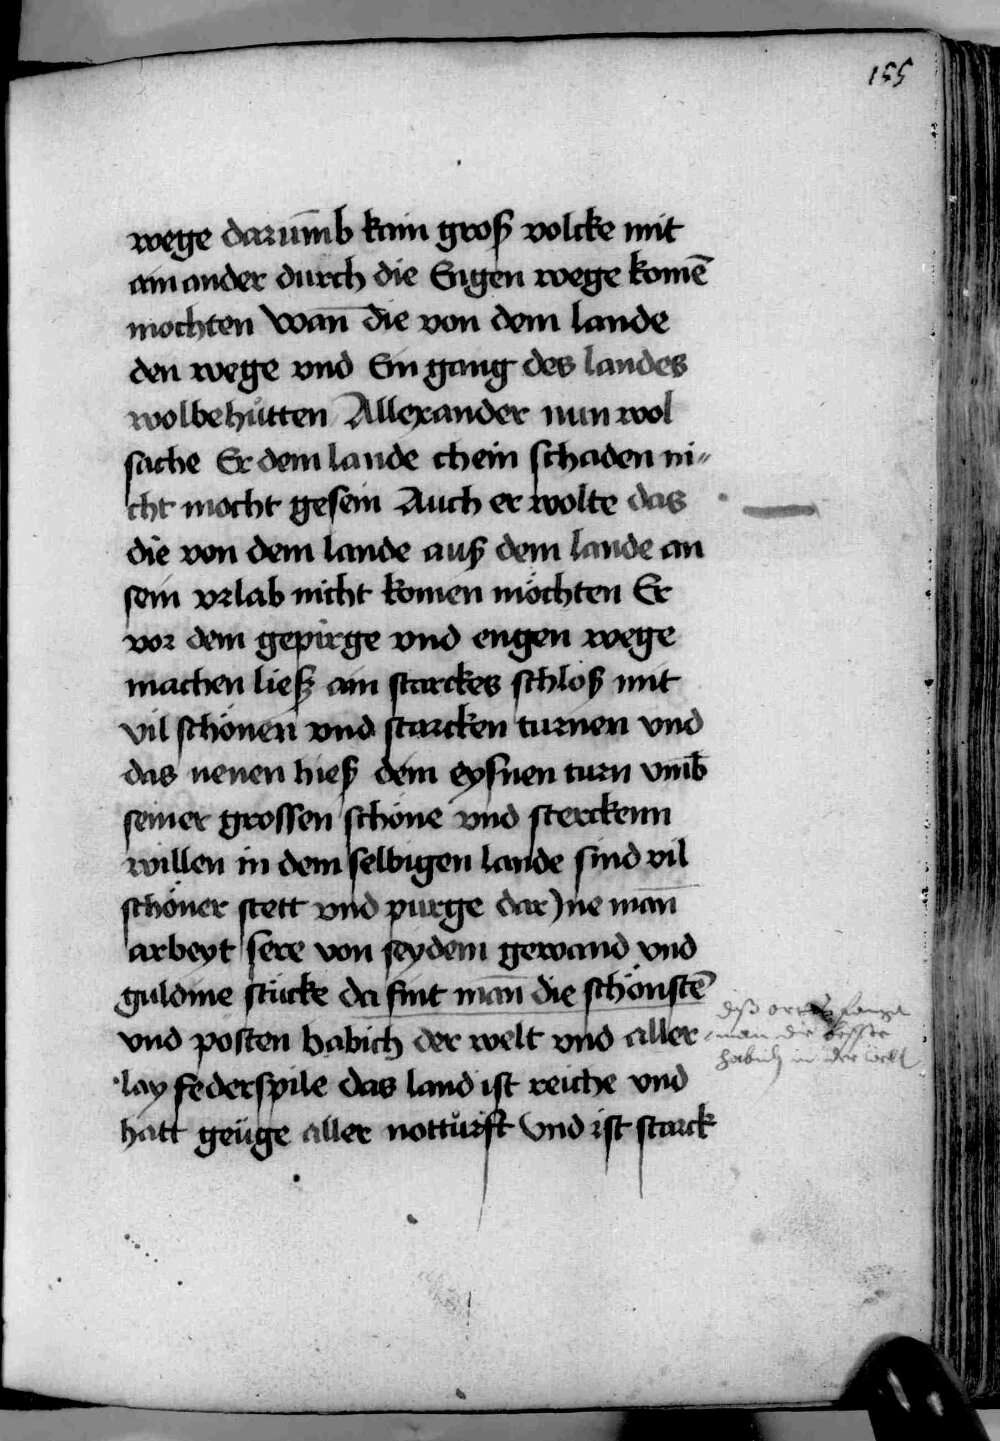 155
wege darum̄b kain groß volcke mit
ain ander durch die Eigen wege komē
mochten Wan̄ die von dem lande
den wege vnd Ein gang des landes
wolbehůtten Allexander nun wol
sache Er dem lande chein schaden ni-
cht mocht gesein Auch er wolte das
die von dem lande auß dem lande an
sein vrlab nicht komen möchten Er
vor dem gepirge vnd engen wege
machen ließ ain starckes schloß mit
vil schönen vnd starcken turnen vnd
das nenen hieß dem eysnen turn vmb̄
seiner grossen schöne vnd sterckenn
willen in dem selbigen lande sind vil
schöner stett vnd purge dar)ne man̄
arbeyt sere von seydem gewand vnd
guldine stücke da fint man̄ die schönstē
vnd posten habich der welt vnd aller
lay federspile das land ist reiche vnd
hatt genüge aller nottůrft Vnd ist starck
diß
man die beste
habich in der welt